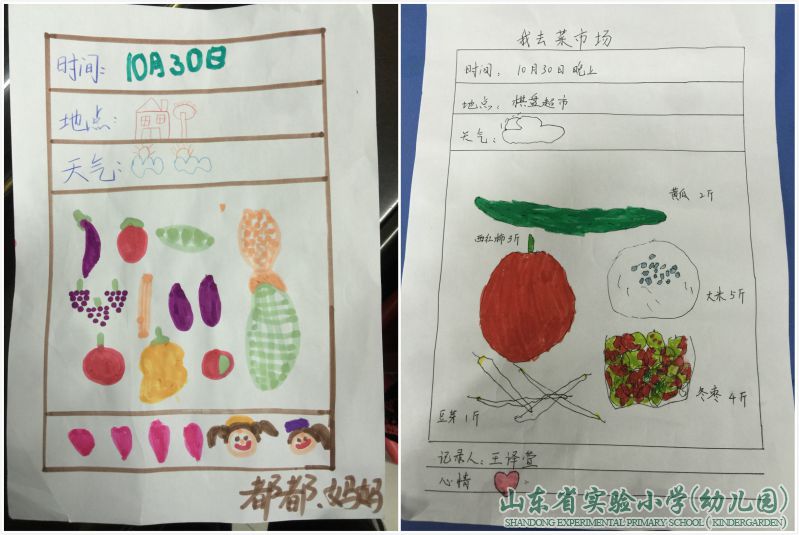 时间: 10月30日
地点:
天气:
都都、妈妈
我去菜市场
时间: 10月30日晚上
地点: 棋盘超市
天气:
黄瓜 2斤
西红柿3斤
大米 5斤
冬枣 4斤
豆芽 1斤
记录人: 王译萱
心情
山东省实验小学(幼儿园)
SHANDONG EXPERIMENTAL PRIMARY SCHOOL ( KINDERGARDEN)